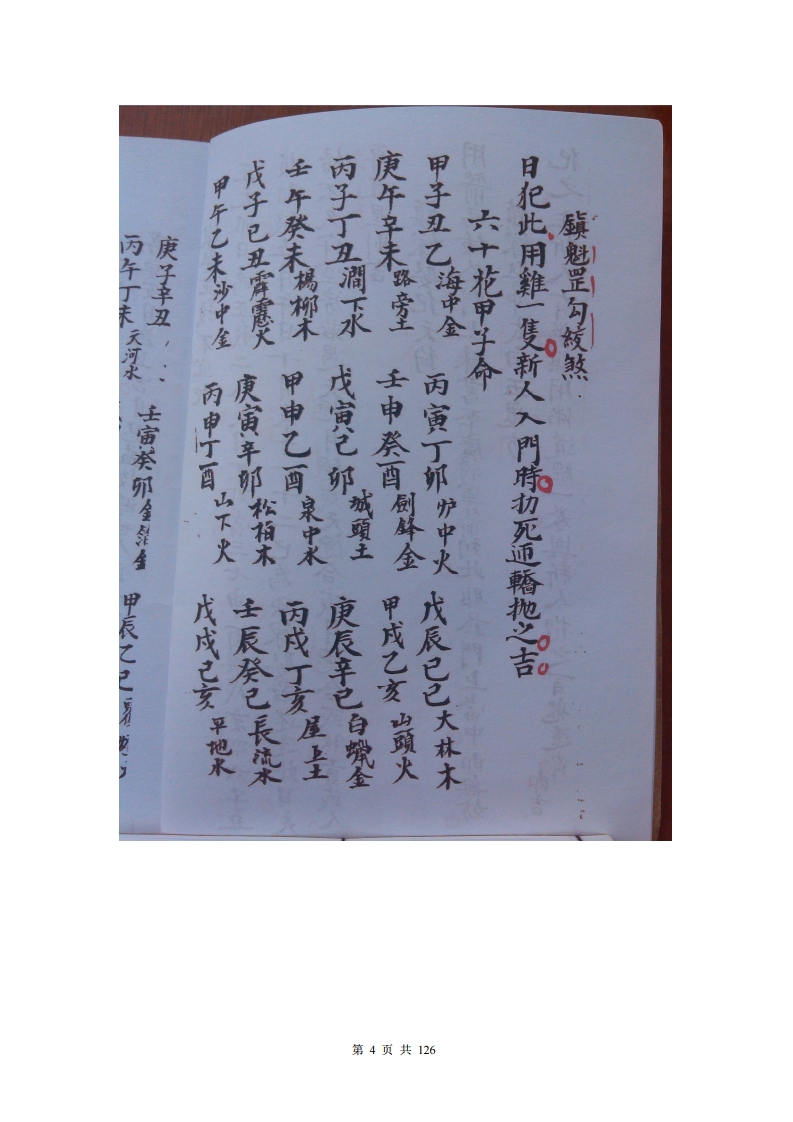 鎮魁罡勾絞煞
日犯此用雞一隻新人入門時扐死逥轎抛之吉
六十花甲子命
甲子丑乙海中金 丙寅丁卯炉中火 戊辰己巳大林木
庚午辛未路旁土 壬申癸酉劍鋒金 甲戌乙亥山頭火
丙子丁丑澗下水 戊寅己卯城頭土 庚辰辛巳白蠟金
壬午癸未楊柳木 甲申乙酉泉中水 丙戌丁亥屋上土
戊子己丑霹靂火 庚寅辛卯松柏木 壬辰癸巳長流水
甲午乙未沙中金 丙申丁酉山下火 戊戌己亥平地水
庚子辛丑 壬寅癸卯金箔金 甲辰乙巳
丙午丁未天河水
第 4 页 共 126